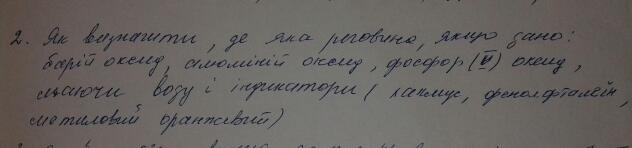 2. Як визначити, де яка речовина, якщо дано:
барій оксид, алюміній оксид, фосфор (V) оксид,
маючи воду і індикатори (лакмус, фенолфталеїн,
метиловий оранжевий)